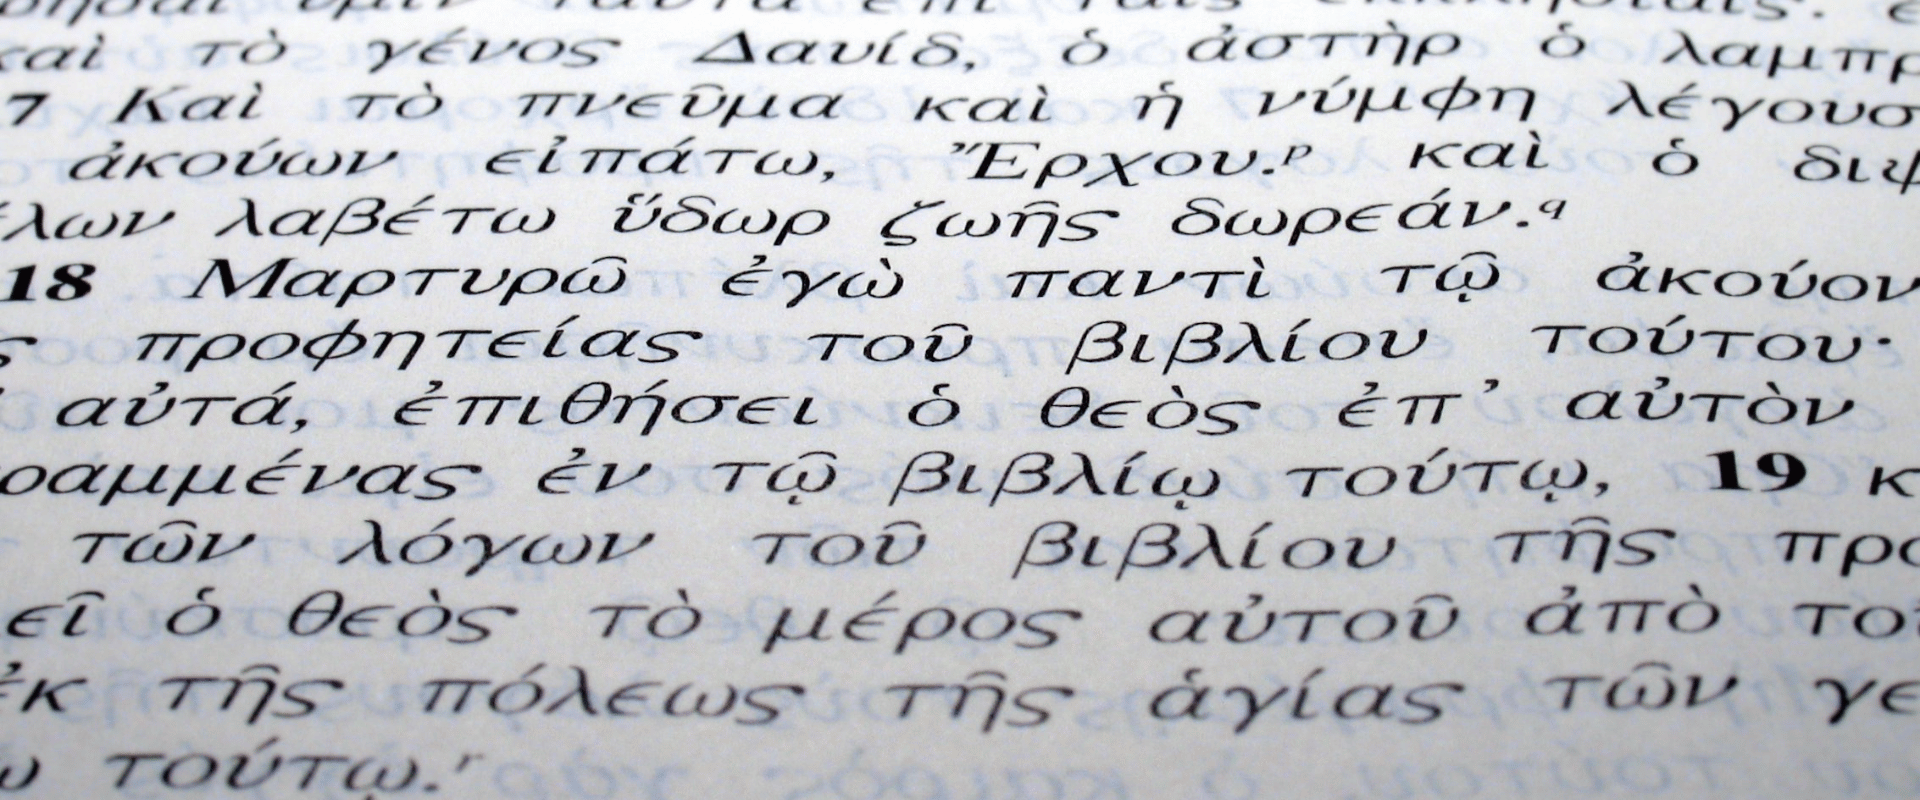 ταῦτα ἐπὶ ταῖς ἐκκλησίαις.
καὶ τὸ γένος Δαυίδ, ὁ ἀστὴρ ὁ λαμπρ
7 Καὶ τὸ πνεῦμα καὶ ἡ νύμφη λέγουσ
ἀκούων εἰπάτω, Ἔρχου.ᵖ καὶ ὁ διψ
έλων λαβέτω ὕδωρ ζωῆς δωρεάν.q
18 Μαρτυρῶ ἐγὼ παντὶ τῷ ἀκούον
ς προφητείας τοῦ βιβλίου τούτου·
αὐτά, ἐπιθήσει ὁ θεὸς ἐπ’ αὐτὸν
ραμμένας ἐν τῷ βιβλίῳ τούτῳ, 19 κ
τῶν λόγων τοῦ βιβλίου τῆς προ
εῖ ὁ θεὸς τὸ μέρος αὐτοῦ ἀπὸ το
ἐκ τῆς πόλεως τῆς ἁγίας τῶν γε
ῳ τούτῳ.ʳ